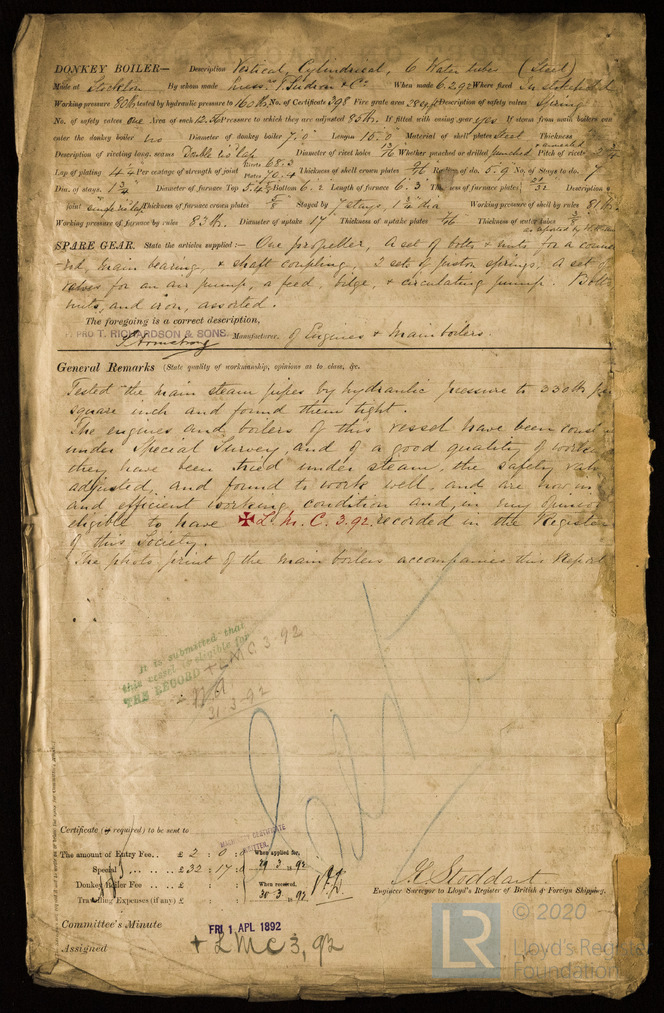 DONKEY BOILER— Description Vertical, Cylindrical, 6 Water tubes (Steel)
Made at Stockton By whom made Messrs. & Co When made 6.2.92 Where fixed In stokehold
Working pressure 80 lbs tested by hydraulic pressure to 160 lbs. No. of Certificate 398 Fire grate area 28 sq ft Description of safety valves Spring
No. of safety valves one Area of each 12.56 Pressure to which they are adjusted 85 lbs. If fitted with easing gear yes If steam from main boilers can
enter the donkey boiler no Diameter of donkey boiler 7.0 Length 15.0 Material of shell plates steel Thickness
Description of riveting long. seams Double riv lap Diameter of rivet holes 13/16 Whether punched or drilled punched Pitch of rivets 2 3/4
Lap of plating 4 1/4 Per centage of strength of joint Rivets 68.3 Plates 70.4 Thickness of shell crown plates 9/16 Radius of do. 5.9 No. of Stays to do. 7
Dia. of stays. 1 3/4 Diameter of furnace Top 5.4 5/8 Bottom 6.2 Length of furnace 6.3 Thickness of furnace plates 21/32 Description of
joint single riv lap Thickness of furnace crown plates 5/8 Stayed by 7 stays, 1 3/4 dia Working pressure of shell by rules 81 lbs.
Working pressure of furnace by rules 83 lbs. Diameter of uptake 17 Thickness of uptake plates 7/16 Thickness of water tubes 3/8
as reported by
SPARE GEAR. State the articles supplied:— One propeller, a set of bolts & nuts for a connec
rod, main bearing, & shaft coupling, 2 sets of piston springs, a set of
valves for an air pump, a feed, bilge, & circulating pump. Bolts
nuts, and iron, assorted.
The foregoing is a correct description,
PRO T. RICHARDSON & SONS
J Armstrong Manufacturer. of Engines & Main boilers.
General Remarks (State quality of workmanship, opinions as to class, &c.
Tested the main steam pipes by hydraulic pressure to 330 lbs per
square inch and found them tight.
The engines and boilers of this vessel have been const
under Special Survey, and of a good quality of work
they have been tried under steam, the safety valv
adjusted, and found to work well, and are now in
and efficient working condition and, in my opinion
eligible to have ✠ L.M.C. 3.92. recorded in the Register
of this Society.
The photo print of the main boilers accompanies this Report
It is submitted that
this vessel is eligible for
THE RECORD + LMC 3.92
31.3.92
Certificate (if required) to be sent to
The amount of Entry Fee.. £ 2 : 0 : 0 When applied for,
Special .. .. .. £ 32 : 17 : 0 29.3.92
Donkey Boiler Fee .. .. £ : : When received,
Travelling Expenses (if any) £ : : 30.3.92
MACHINERY CERTIFICATE
WRITTEN.
J. Stoddart
Engineer Surveyor to Lloyd's Register of British & Foreign Shipping.
Committee's Minute FRI 1 APL 1892
Assigned + LMC 3, 92
LR © 2020
Lloyd's Register
Foundation